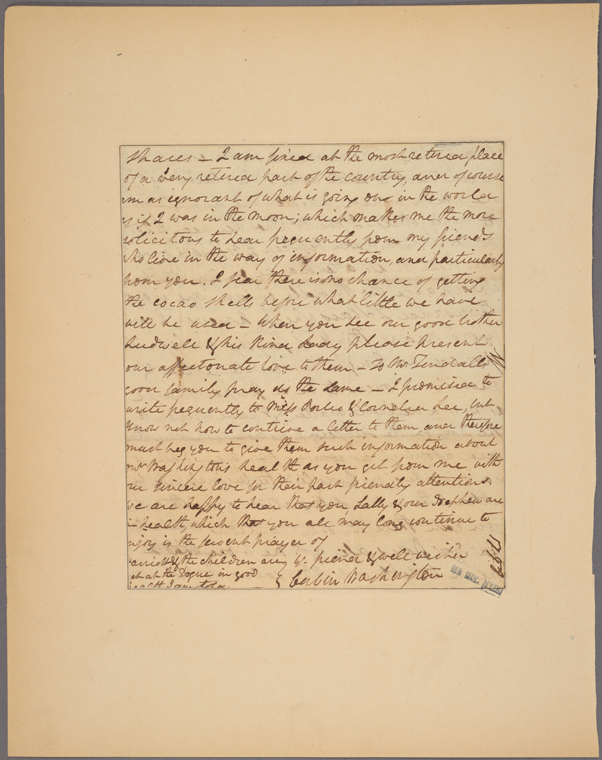 shares – I am fixed at the most retired place
of a very retired part of the country, and of course
am as ignorant of what is going on in the world
as if I was in the moon; which makes me the more
solicitous to hear frequently from my friends
who live in the way of information, and particularly
from you. I fear there is no chance of getting
the cocao shell before what little we have
will be used – When you see our good brother
Ludwell & his kind Lady please present
our affectionate love to them – To Mr Tendall's
good family pray do the same – I promised to
write frequently to Miss & Cornelia Lee, but
know not how to contrive a letter to them and therefore
must beg you to give them such information about
Mrs Washington's health as you get from me with
our sincere love for their past friendly attentions
we are happy to hear that you Sally & our Nephew are
in health, which that you all may long continue to
enjoy is the fervent prayer of
& the children are yr. friend & well wisher
at the in good
health I am told. Corbin Washington